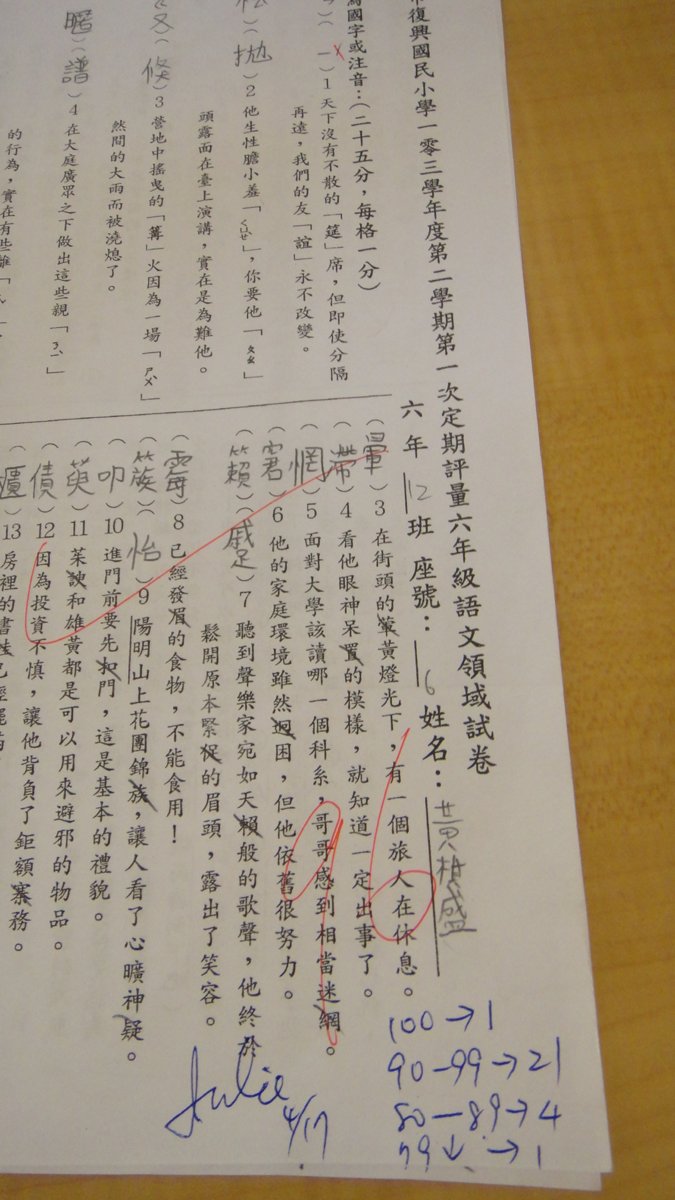 市復興國民小學一零三學年度第二學期第一次定期評量六年級語文領域試卷
六年 12 班 座號：6 姓名：黃柏盛
為國字或注音：（二十五分，每格一分）
（一）1 天下沒有不散的「筵」席，但即使分隔
再遠，我們的友「誼」永不改變。
（拋）2 他生性膽小羞「ㄑㄩㄝˋ」，你要他「ㄆㄠ」
頭露面在臺上演講，實在是為難他。
（倏）3 營地中搖曳的「篝」火因為一場「ㄕㄨˋ」
然間的大雨而被澆熄了。
（譜）4 在大庭廣眾之下做出這些親「ㄋㄧˋ」
的行為，實在有些離「
（暈）3 在街頭的葷黃燈光下，有一個旅人在休息。
（滯）4 看他眼神呆置的模樣，就知道一定出事了。
（惘）5 面對大學該讀哪一個科系，哥哥感到相當迷網。
（窘）6 他的家庭環境雖然迥困，但他依舊很努力。
（籟）（蹙）7 聽到聲樂家宛如天賴般的歌聲，他終於
鬆開原本緊促的眉頭，露出了笑容。
（霉）8 已經發眉的食物，不能食用！
（簇）（怡）9 陽明山上花團錦族，讓人看了心曠神疑。
（叩）10 進門前要先扣門，這是基本的禮貌。
（萸）11 茱諛和雄黃都是可以用來避邪的物品。
（債）12 因為投資不慎，讓他背負了鉅額寨務。
）13 房裡的書
100→1
90—99→21
80—89→4
79↓→1
Julie
4/17